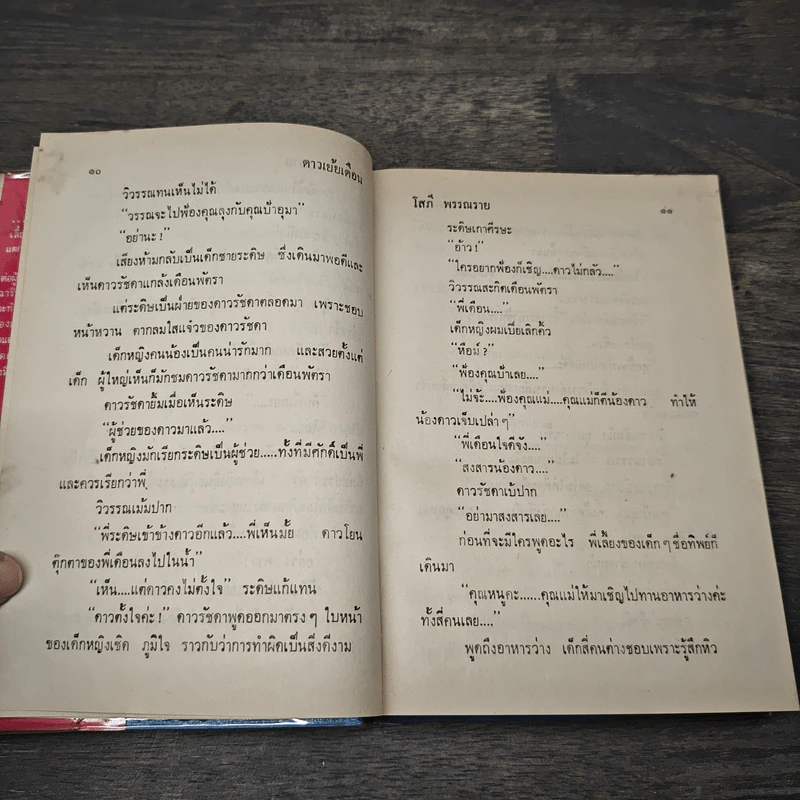 ๑๐
ดาวเย้ยเดือน
วิวรรณทนเห็นไม่ได้
“วรรณจะไปฟ้องคุณลุงกับคุณป้าอุมา”
“อย่านะ !”
เสียงห้ามกลับเป็นเด็กชายระดิษ ซึ่งเดินมาพอดีและ
เห็นดาวรัชดาแกล้งเดือนพัตรา
แต่ระดิษเป็นฝ่ายของดาวรัชดาตลอดมา เพราะชอบ
หน้าหวาน ตากลมใสแจ๋วของดาวรัชดา
เด็กหญิงคนน้องเป็นคนน่ารักมาก และสวยตั้งแต่
เด็ก ผู้ใหญ่เห็นก็มักชมดาวรัชดามากกว่าเดือนพัตรา
ดาวรัชดายิ้มเมื่อเห็นระดิษ
“ผู้ช่วยของดาวมาแล้ว....”
เด็กหญิงมักเรียกระดิษเป็นผู้ช่วย.....ทั้งที่มีศักดิ์เป็นพี่
และควรเรียกว่าพี่
วิวรรณเม้มปาก
“พี่ระดิษเข้าข้างดาวอีกแล้ว....พี่เห็นมั้ย ดาวโยน
ตุ๊กตาของพี่เดือนลงไปในน้ำ”
“เห็น....แต่ดาวคงไม่ตั้งใจ” ระดิษแก้แทน
“ดาวตั้งใจค่ะ !” ดาวรัชดาพูดออกมาตรง ๆ ใบหน้า
ของเด็กหญิงเชิด ภูมิใจ ราวกับว่าการทำผิดเป็นสิ่งดีงาม
โสภี พรรณราย
๑๑
ระดิษเกาศีรษะ
“อ้าว !”
“ใครอยากฟ้องก็เชิญ....ดาวไม่กลัว....”
วิวรรณสะกิดเดือนพัตรา
“พี่เดือน....”
เด็กหญิงผมเปียเลิกคิ้ว
“หือม์ ?”
“ฟ้องคุณป้าเลย....”
“ไม่จ้ะ....ฟ้องคุณแม่....คุณแม่ก็ตีน้องดาว ทำให้
น้องดาวเจ็บเปล่า ๆ”
“พี่เดือนใจดีจัง....”
“สงสารน้องดาว....”
ดาวรัชดาเบ้ปาก
“อย่ามาสงสารเลย....”
ก่อนที่จะมีใครพูดอะไร พี่เลี้ยงของเด็ก ๆ ชื่อทิพย์ก็
เดินมา
“คุณหนูคะ......คุณแม่ให้มาเชิญไปทานอาหารว่างค่ะ
ทั้งสี่คนเลย....”
พูดถึงอาหารว่าง เด็กสี่คนต่างชอบเพราะรู้สึกหิว